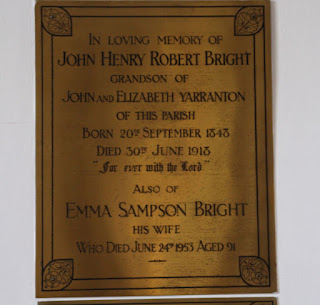 IN LOVING MEMORY OF
JOHN HENRY ROBERT BRIGHT
GRANDSON OF
JOHN AND ELIZABETH YARRANTON
OF THIS PARISH
BORN 20TH SEPTEMBER 1843
DIED 30TH JUNE 1913
"For ever with the Lord"
ALSO OF
EMMA SAMPSON BRIGHT
HIS WIFE
WHO DIED JUNE 24TH 1953 AGED 91